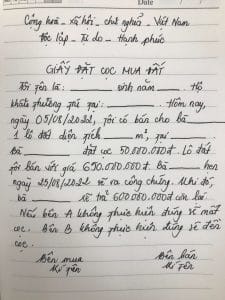 Date
Cộng hoà - xã hội - chủ nghĩa - Việt Nam
Độc lập - Tự do - Hạnh phúc
GIẤY ĐẶT CỌC MUA ĐẤT
Tôi tên là: ________ sinh năm ____ Hộ
khẩu thường trú tại: ________. Hôm nay,
ngày 05/08/2022, tôi có bán cho bà ____
1 lô đất diện tích ____ m², tại ____
Bà ____ đặt cọc 50.000.000đ. Lô đất
tôi bán với giá 650.000.000đ. Bà ____ hẹn
ngày 25/08/2022 sẽ ra công chứng. Khi đó,
bà ____ sẽ trả 600.000.000đ còn lại
Nếu bên A không thực hiện đúng sẽ mất
cọc. Bên B không thực hiện đúng sẽ đền
cọc.
Bên mua Bên bán
Ký tên Ký tên